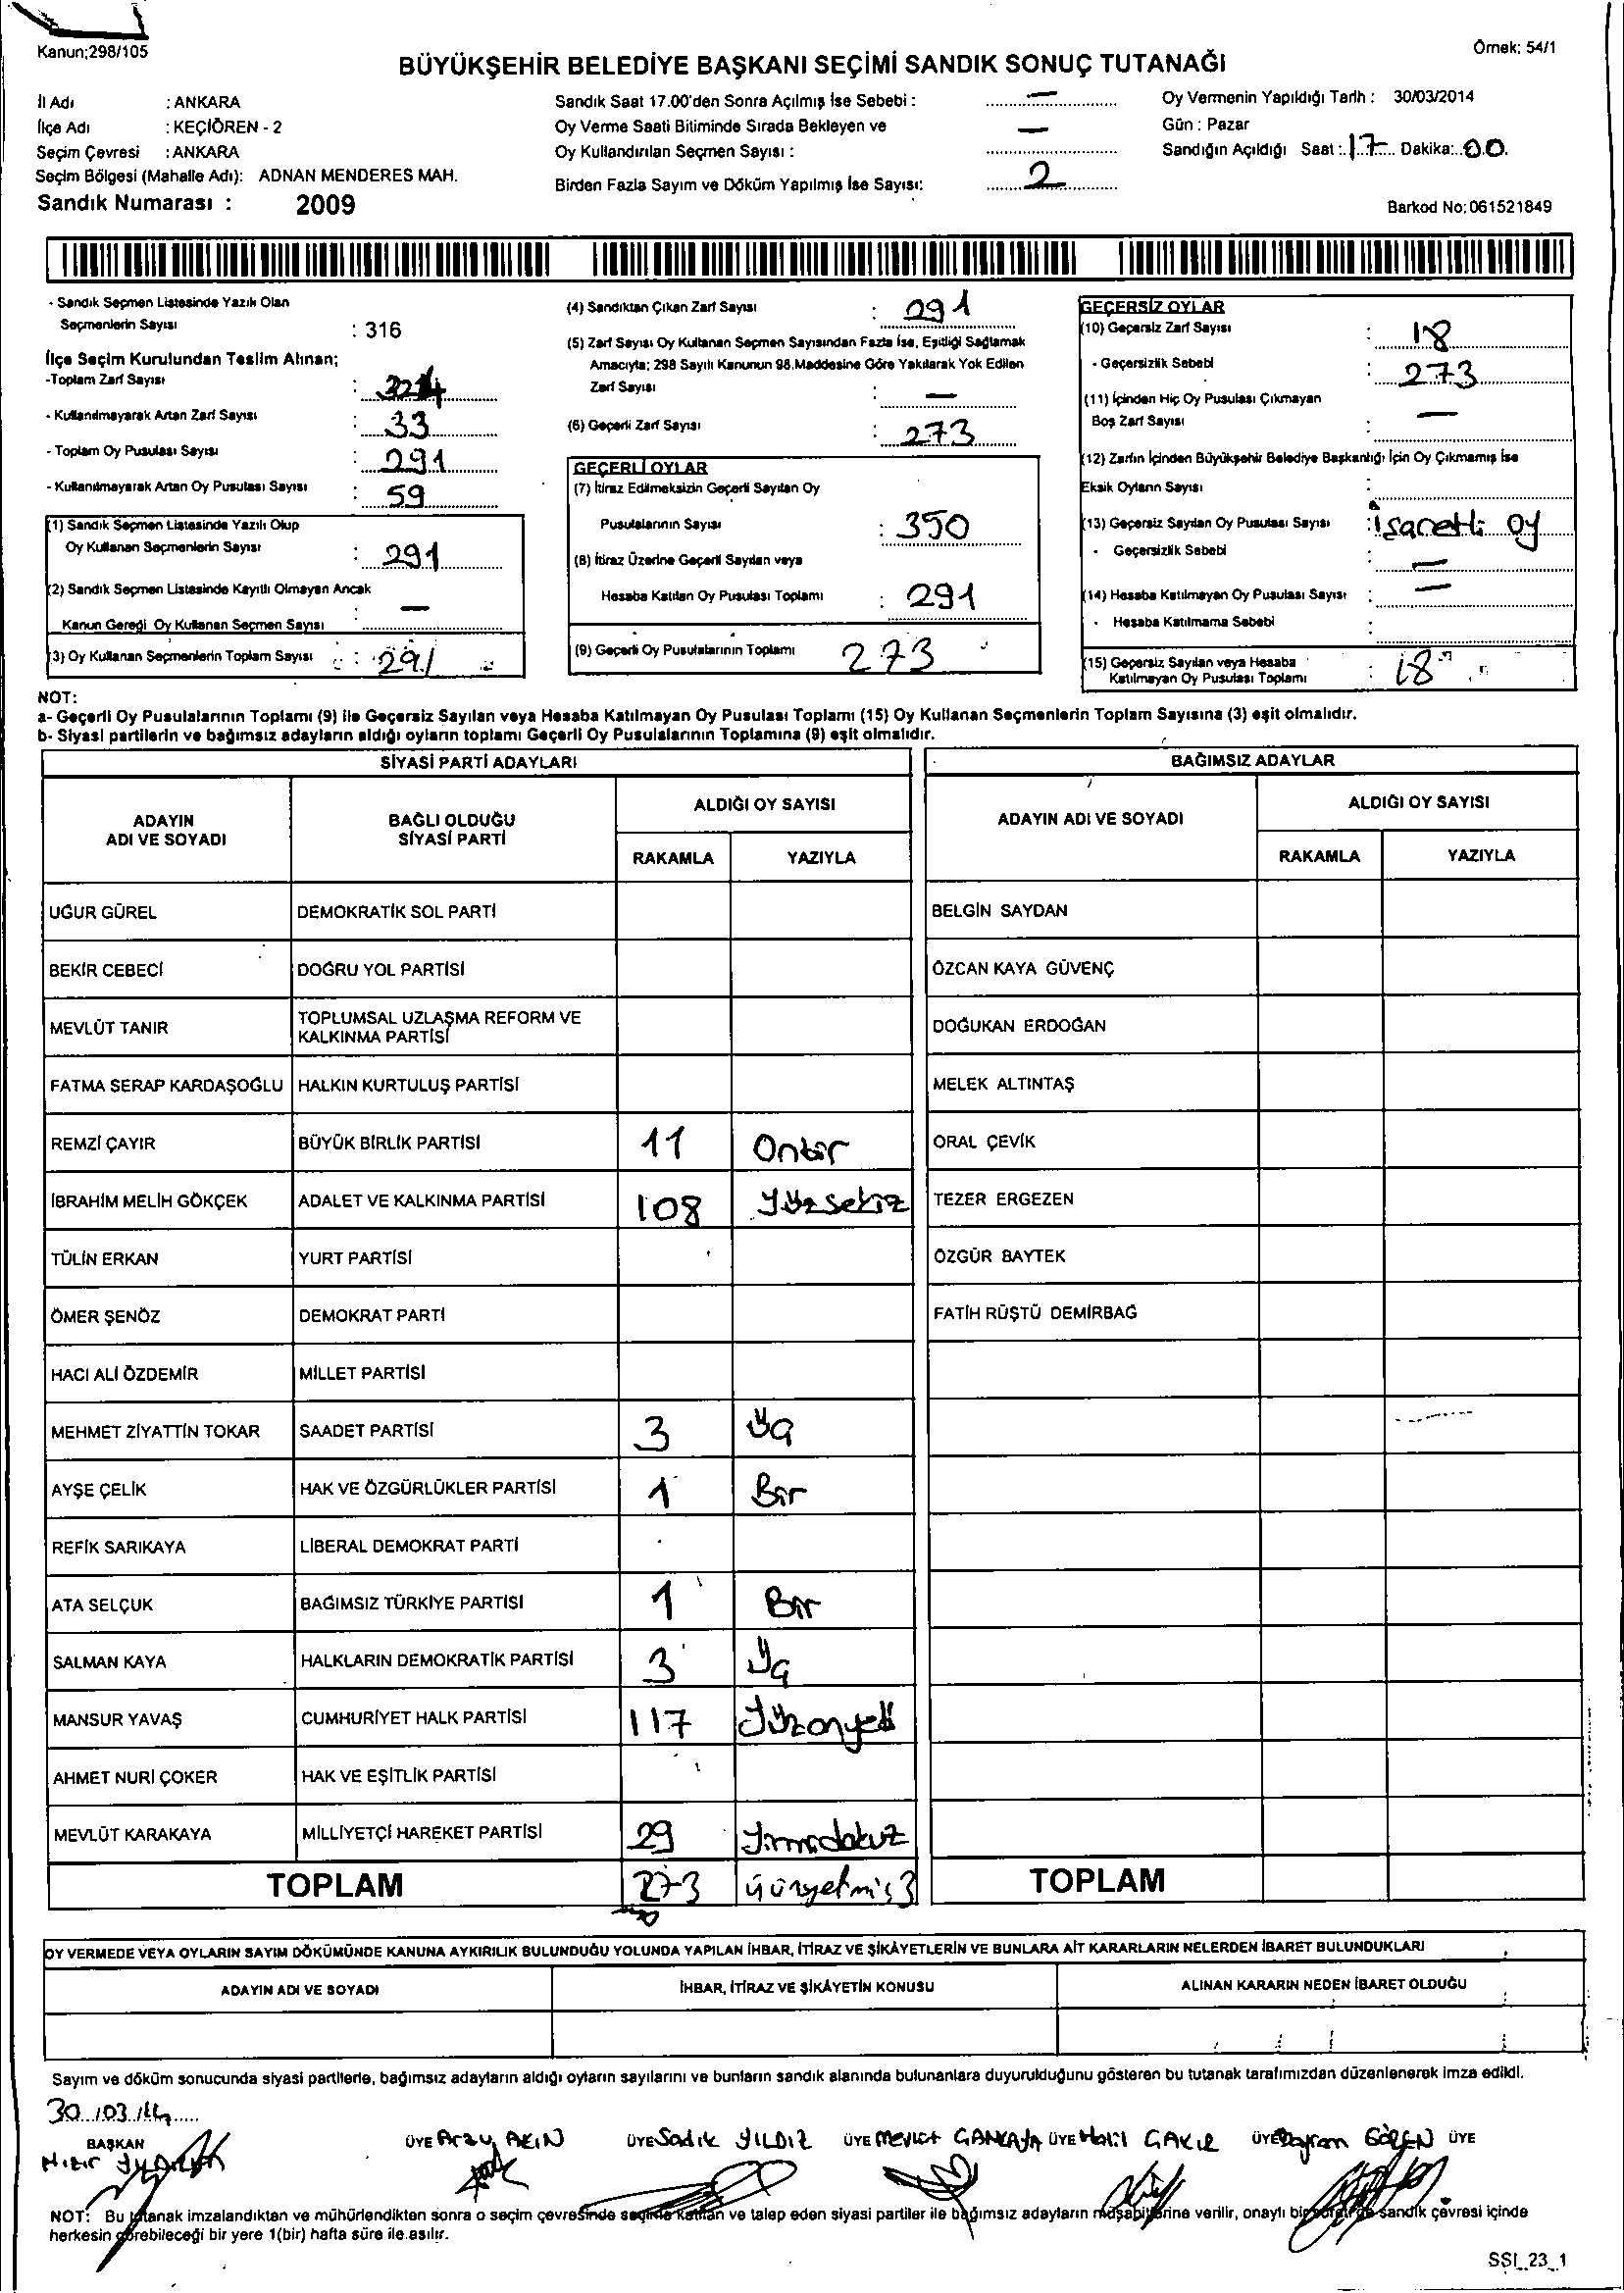 Kanun;298/105
Örnek: 54/1
BÜYÜKŞEHİR BELEDİYE BAŞKANI SEÇİMİ SANDIK SONUÇ TUTANAĞI
İl Adı : ANKARA
İlçe Adı : KEÇİÖREN - 2
Seçim Çevresi : ANKARA
Seçim Bölgesi (Mahalle Adı): ADNAN MENDERES MAH.
Sandık Numarası : 2009
Sandık Saat 17.00'den Sonra Açılmış İse Sebebi : —
Oy Verme Saati Bitiminde Sırada Bekleyen ve
Oy Kullandırılan Seçmen Sayısı : —
Birden Fazla Sayım ve Döküm Yapılmış İse Sayısı: 2
Oy Vermenin Yapıldığı Tarih : 30/03/2014
Gün : Pazar
Sandığın Açıldığı Saat : 17 Dakika: 00
Barkod No: 061521849
- Sandık Seçmen Listesinde Yazılı Olan
Seçmenlerin Sayısı : 316
İlçe Seçim Kurulundan Teslim Alınan;
-Toplam Zarf Sayısı :
- Kullanılmayarak Artan Zarf Sayısı : 33
- Toplam Oy Pusulası Sayısı : 291
- Kullanılmayarak Artan Oy Pusulası Sayısı : 59
(1) Sandık Seçmen Listesinde Yazılı Olup
Oy Kullanan Seçmenlerin Sayısı : 291
(2) Sandık Seçmen Listesinde Kayıtlı Olmayan Ancak
Kanun Gereği Oy Kullanan Seçmen Sayısı : —
(3) Oy Kullanan Seçmenlerin Toplam Sayısı : 291
(4) Sandıktan Çıkan Zarf Sayısı : 291
(5) Zarf Sayısı Oy Kullanan Seçmen Sayısından Fazla İse, Eşitliği Sağlamak
Amacıyla; 298 Sayılı Kanunun 98.Maddesine Göre Yakılarak Yok Edilen
Zarf Sayısı : —
(6) Geçerli Zarf Sayısı : 273
GEÇERLİ OYLAR
(7) İtiraz Edilmeksizin Geçerli Sayılan Oy
Pusulalarının Sayısı : 350
(8) İtiraz Üzerine Geçerli Sayılan veya
Hesaba Katılan Oy Pusulası Toplamı : 291
(9) Geçerli Oy Pusulalarının Toplamı 273
GEÇERSİZ OYLAR
(10) Geçersiz Zarf Sayısı : 18
- Geçersizlik Sebebi : 273
(11) İçinden Hiç Oy Pusulası Çıkmayan
Boş Zarf Sayısı : —
(12) Zarfın İçinden Büyükşehir Belediye Başkanlığı İçin Oy Çıkmamış İse
Eksik Oyların Sayısı :
(13) Geçersiz Sayılan Oy Pusulası Sayısı : işaretli oy
- Geçersizlik Sebebi : —
(14) Hesaba Katılmayan Oy Pusulası Sayısı : —
- Hesaba Katılmama Sebebi :
(15) Geçersiz Sayılan veya Hesaba
Katılmayan Oy Pusulası Toplamı : 18
NOT:
a- Geçerli Oy Pusulalarının Toplamı (9) ile Geçersiz Sayılan veya Hesaba Katılmayan Oy Pusulası Toplamı (15) Oy Kullanan Seçmenlerin Toplam Sayısına (3) eşit olmalıdır.
b- Siyasi partilerin ve bağımsız adayların aldığı oyların toplamı Geçerli Oy Pusulalarının Toplamına (9) eşit olmalıdır.
SİYASİ PARTİ ADAYLARI
ADAYIN ADI VE SOYADI
BAĞLI OLDUĞU SİYASİ PARTİ
ALDIĞI OY SAYISI
RAKAMLA YAZIYLA
UĞUR GÜREL DEMOKRATİK SOL PARTİ
BEKİR CEBECİ DOĞRU YOL PARTİSİ
MEVLÜT TANIR TOPLUMSAL UZLAŞMA REFORM VE
KALKINMA PARTİSİ
FATMA SERAP KARDAŞOĞLU HALKIN KURTULUŞ PARTİSİ
REMZİ ÇAYIR BÜYÜK BİRLİK PARTİSİ 11 Onbir
İBRAHİM MELİH GÖKÇEK ADALET VE KALKINMA PARTİSİ 108 Yüzsekiz
TÜLİN ERKAN YURT PARTİSİ
ÖMER ŞENÖZ DEMOKRAT PARTİ
HACI ALİ ÖZDEMİR MİLLET PARTİSİ
MEHMET ZİYATTİN TOKAR SAADET PARTİSİ 3 Üç
AYŞE ÇELİK HAK VE ÖZGÜRLÜKLER PARTİSİ 1 Bir
REFİK SARIKAYA LİBERAL DEMOKRAT PARTİ
ATA SELÇUK BAĞIMSIZ TÜRKİYE PARTİSİ 1 Bir
SALMAN KAYA HALKLARIN DEMOKRATİK PARTİSİ 3 Üç
MANSUR YAVAŞ CUMHURİYET HALK PARTİSİ 117 Yüzonyedi
AHMET NURİ ÇOKER HAK VE EŞİTLİK PARTİSİ
MEVLÜT KARAKAYA MİLLİYETÇİ HAREKET PARTİSİ 29 Yirmidokuz
TOPLAM 273
BAĞIMSIZ ADAYLAR
ADAYIN ADI VE SOYADI
ALDIĞI OY SAYISI
RAKAMLA YAZIYLA
BELGİN SAYDAN
ÖZCAN KAYA GÜVENÇ
DOĞUKAN ERDOĞAN
MELEK ALTINTAŞ
ORAL ÇEVİK
TEZER ERGEZEN
ÖZGÜR BAYTEK
FATİH RÜŞTÜ DEMİRBAĞ
TOPLAM
OY VERMEDE VEYA OYLARIN SAYIM DÖKÜMÜNDE KANUNA AYKIRILIK BULUNDUĞU YOLUNDA YAPILAN İHBAR, İTİRAZ VE ŞİKAYETLERİN VE BUNLARA AİT KARARLARIN NELERDEN İBARET BULUNDUKLARI
ADAYIN ADI VE SOYADI İHBAR, İTİRAZ VE ŞİKAYETİN KONUSU ALINAN KARARIN NEDEN İBARET OLDUĞU
Sayım ve döküm sonucunda siyasi partilerle, bağımsız adayların aldığı oyların sayılarını ve bunların sandık alanında bulunanlara duyurulduğunu gösteren bu tutanak tarafımızdan düzenlenerek imza edildi.
30/03/14
BAŞKAN ÜYE Arzu AKIN ÜYE Sadık YILDIZ ÜYE Mevlüt ÇANKAYA ÜYE Halil ÇAKIR ÜYE Bayram ÜYE
Hızır
NOT: Bu tutanak imzalandıktan ve mühürlendikten sonra o seçim çevresinde seçime katılan ve talep eden siyasi partiler ile bağımsız adayların müşahitlerine verilir, onaylı bir sandık çevresi içinde
herkesin görebileceği bir yere 1(bir) hafta süre ile asılır.
SSI_23_1